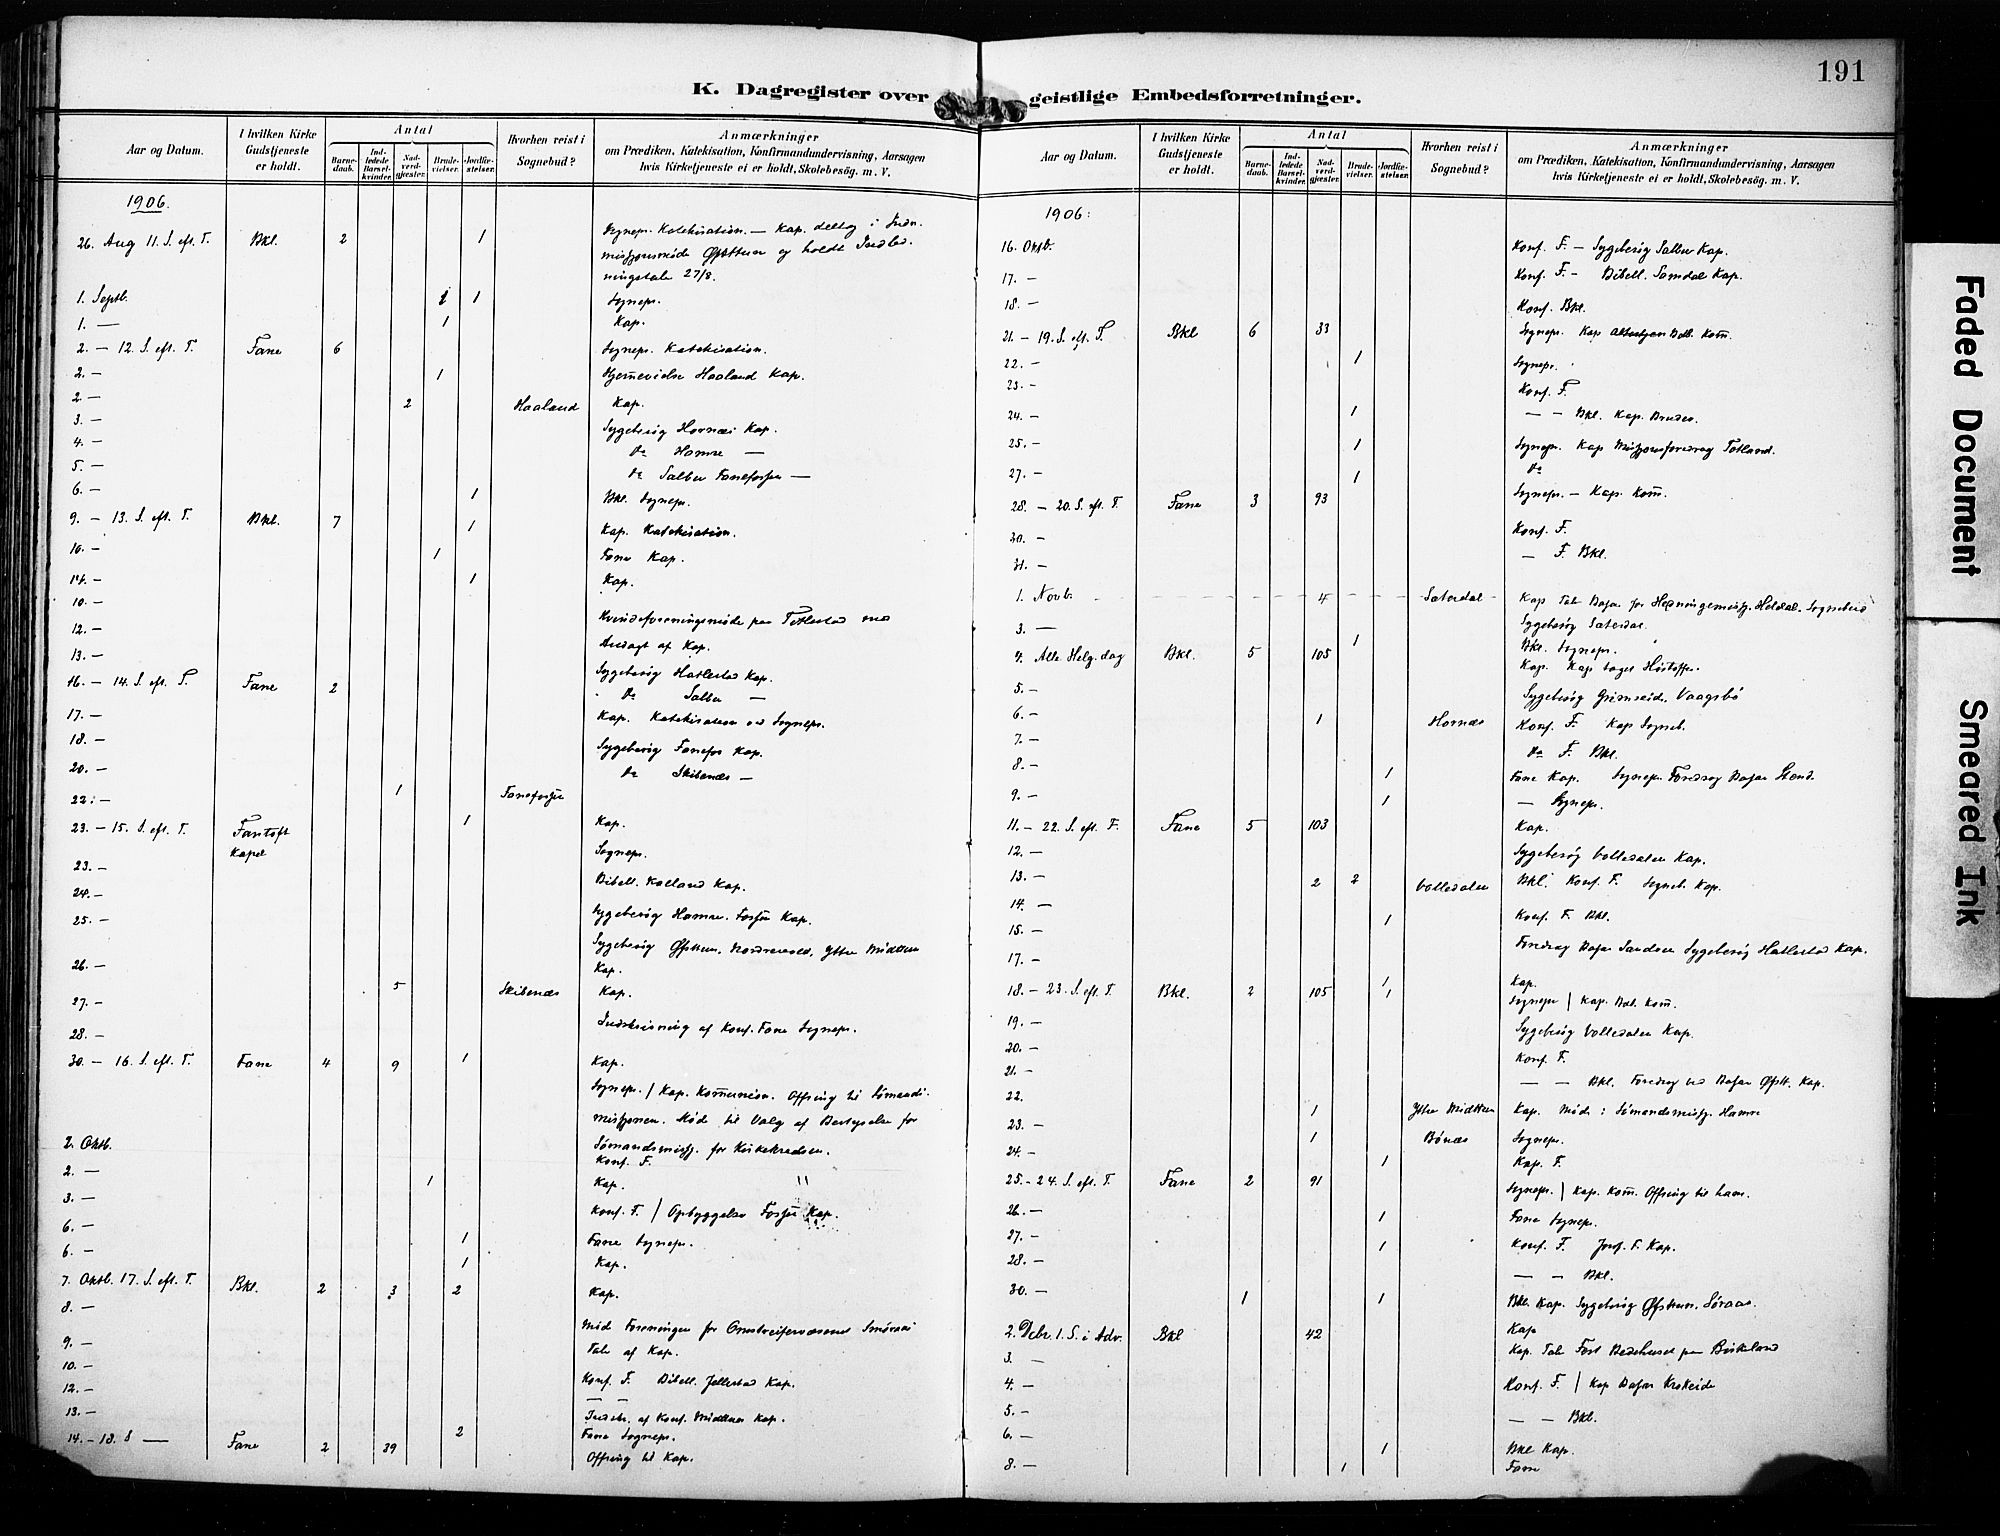 191
K. Dagregister over geistlige Embedsforretninger.
Aar og Datum.
I hvilken Kirke Gudstjeneste er holdt.
Antal
Barnedaab.
Indledede Barselkvinder.
Nadverdgjæster.
Brudevielser.
Jordfæstelser.
Hvorhen reist i Sognebud?
Anmærkninger
om Prædiken, Katekisation, Konfirmandundervisning, Aarsagen
hvis Kirketjeneste ei er holdt, Skolebesög. m. V.
1906.
26. Aug 11. S. eft. T. Bkl. 2 1 Sognepr. Katekisation. — Kap. deltog i Indr.
og holdt Indled
ningstale 27/8.
1. Septb. 1 Sognepr.
1. — 1 Kap.
2. — 12. S. eft. T. Fane 6 Sognepr. Katekisation.
2. — 1 Hjemmevielse Haaland Kap.
2 — 2 Haaland Kap.
3. — Sygebesøg Hornæs Kap.
4. — Do Hamre —
5. — Do Salbu Fanefossen —
6. — 1 Bkl. Sognepr.
9. — 13. S. eft. T. Bkl. 7 1 Kap. Katekisation.
10. — 1 Fane Kap.
14. — 1 Kap.
10. —
12. — Kvindeforeningsmøde paa Titlestad med
13. — Andagt af Kap.
16. — 14. S. eft. T. Fane 2 Sygebesøg Hatlestad Kap.
Do Salbu —
17. — Kap. Katekisation ved Sognepr.
18. — Sygebesøg Fanefos Kap.
20. — Do Skibenæs —
22. — 1 Fanefossen
23. — 15. S. eft. T. Fantoft Kapel 1 Kap.
23. — Sognepr.
24. — Bibell. Kalland Kap.
25. — Sygebesøg Hamre. Fossen Kap.
Sygebesøg Øfsttun, Nordrevold, Ytre Midttun
26. — Kap.
27. — 5 Skibenæs Kap.
28. — Indskrivning af Konf. Fane Sognepr.
30. — 16. S. eft. T. Fane 4 9 1 Kap.
Sognepr. / Kap. Kommunion. Offring til Sømands-
missjonen. Møde til Valg af Bestyrelse for
2. Oktb. Sømandsmissj. for Kirkekredsen.
Konf. F.
2. — 1 Kap.
3. — Konf. F. / Opbyggelse Fossen Kap.
6. — 1 Fane Sognepr.
6. — 1 Kap.
7. Oktb. 17. S. eft. T. Bkl. 2 3 2 Kap.
8. —
9. — Mød Foreningen for Omstreifervæsenet Smøraas
Tale af Kap.
10. —
12. — Konf. F. Bibell. Jellestad Kap.
13. — Indskr. af Konf. Midttun Kap.
14. — 18. S — Fane 2 39 2 Fane Sognepr.
Offring til Kap.
Aar og Datum.
I hvilken Kirke Gudstjeneste er holdt.
Antal
Barnedaab.
Indledede Barselkvinder.
Nadverdgjæster.
Brudevielser.
Jordfæstelser.
Hvorhen reist i Sognebud?
Anmærkninger
om Prædiken, Katekisation, Konfirmandundervisning, Aarsagen
hvis Kirketjeneste ei er holdt, Skolebesög. m. V.
1906:
16. Oktb. Konf. F. — Sygebesøg Salbu Kap.
17. — Konf. F. — Bibell. Samdal Kap.
18. — Konf. Bkl.
21. — 19. S. eft. T. Bkl 6 33 Sognepr. Kap Komm.
22. — 1 Sognepr.
23. — Konf. F.
24. — 1 — — Bkl. Kap.
25. — 1 Sognepr. Kap Missjonsforedrag Totland.
27. — 1 Do
28. — 20. S. eft. T. Fane 3 93 Sognepr. — Kap. Komm.
30. — Konf. F.
31. — — F. Bkl.
1. Novb. 4 Sæterdal Kap Tale Basar for Hedningemissj. Heldal. Sognebud
3. — Sygebesøg Sæterdal.
1 Bkl. Sognepr.
4. Alle Helg. dag Bkl. 5 105 Kap. Kap tager Høstoffer.
5. — Sygebesøg Grimseid, Vaagsbø
6. — 1 Hornæs Konf. F. Kap Sogneb.
7. — Do F. Bkl.
8. — 1 Fane Kap. Sognepr. Foredrag Basar Stend.
9. — 1 — Sognepr.
11. — 22. S. eft. T. Fane 5 103 Kap.
12. — Sygebesøg Volledalen Kap.
13. — 2 2 Volledalen Bkl. Konf. F. Sogneb. Kap.
14. —
15. — 1 Konf. F. Bkl.
17. — Foredrag Basar Sandven Sygebesøg Hatlestad Kap.
1 Kap.
18. — 23. S. eft. T. Bkl. 2 105 1 Sognepr / Kap. Komm.
19. — Sygebesøg Volledalen Kap.
20. — Konf. F.
21. — — — Bkl. Foredrag ved Basar Øfstt. Kap.
22. 1 Ytre Midttun Kap. Møde i Sømandsmissj. Hamre
23. — 1 Bønæs Sognepr.
24. — 1 Kap. F.
25. — 24. S. eft. T. Fane 2 91 Sognepr. / Kap. Komm. Offring til ham.
26. — 1 Fane Sognepr.
27. — 1 Konf. F. Jordf. F. Kap.
28. — — — Bkl.
30. — 1 1 Bkl. Kap. Sygebesøg Øfsttun. Søraas.
2. Debr. 1. S. i Adv. Bkl 42 Kap
3. — Kap. Tale Fest Bedehuset paa Birkeland
4. — Konf. F. / Kap Basar Krokeide
5. — — — Bkl.
6. — 1 Bkl Kap.
8. — 1 Fane
Faded Document
Smeared Ink